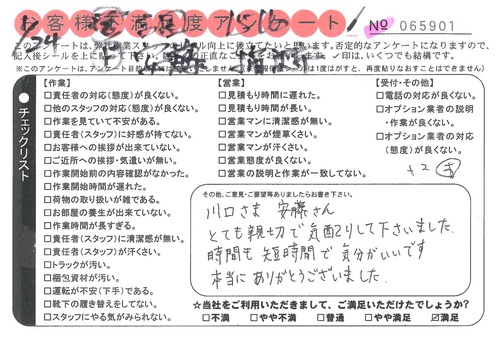 お客様不満足度アンケート
No 065901
このアンケートは、弊社作業スタッフのレベル向上に役立てたいと思います。否定的なアンケートになりますので、
✓印は、いくつでも結構です。
チェックリスト
【作業】
□責任者の対応(態度)が良くない。
□他のスタッフの対応(態度)が良くない。
□作業を見ていて不安がある。
□責任者(スタッフ)に好感が持てない。
□お客様への挨拶が出来ていない。
□ご近所への挨拶・気遣いが無い。
□作業開始前の内容確認がなかった。
□作業開始時間が遅れた。
□荷物の取り扱いが雑である。
□お部屋の養生が出来ていない。
□作業時間が長すぎる。
□責任者(スタッフ)に清潔感が無い。
□責任者(スタッフ)が汗くさい。
□トラックが汚い。
□梱包資材が汚い。
□運転が不安(下手)である。
□靴下の履き替えをしてない。
□スタッフにやる気がみられない。
【営業】
□見積もり時間に遅れた。
□見積もり時間が長い。
□営業マンに清潔感が無い。
□営業マンが煙草くさい。
□営業マンが汗くさい。
□営業態度が良くない。
□営業の説明と作業が一致してない。
【受付・その他】
□電話の対応が良くない。
□オプション業者の説明
・作業が良くない。
□オプション業者の対応
(態度)が良くない。
その他、ご意見・ご要望等ありましたらお書き下さい。
川口さま 安藤さん
とても親切で気配りして下さいました。
時間も短時間で気分がいいです
本当にありがとうございました。
☆当社をご利用いただきまして、ご満足いただけたでしょうか?
□不満 □やや不満 □普通 □やや満足 ☑満足